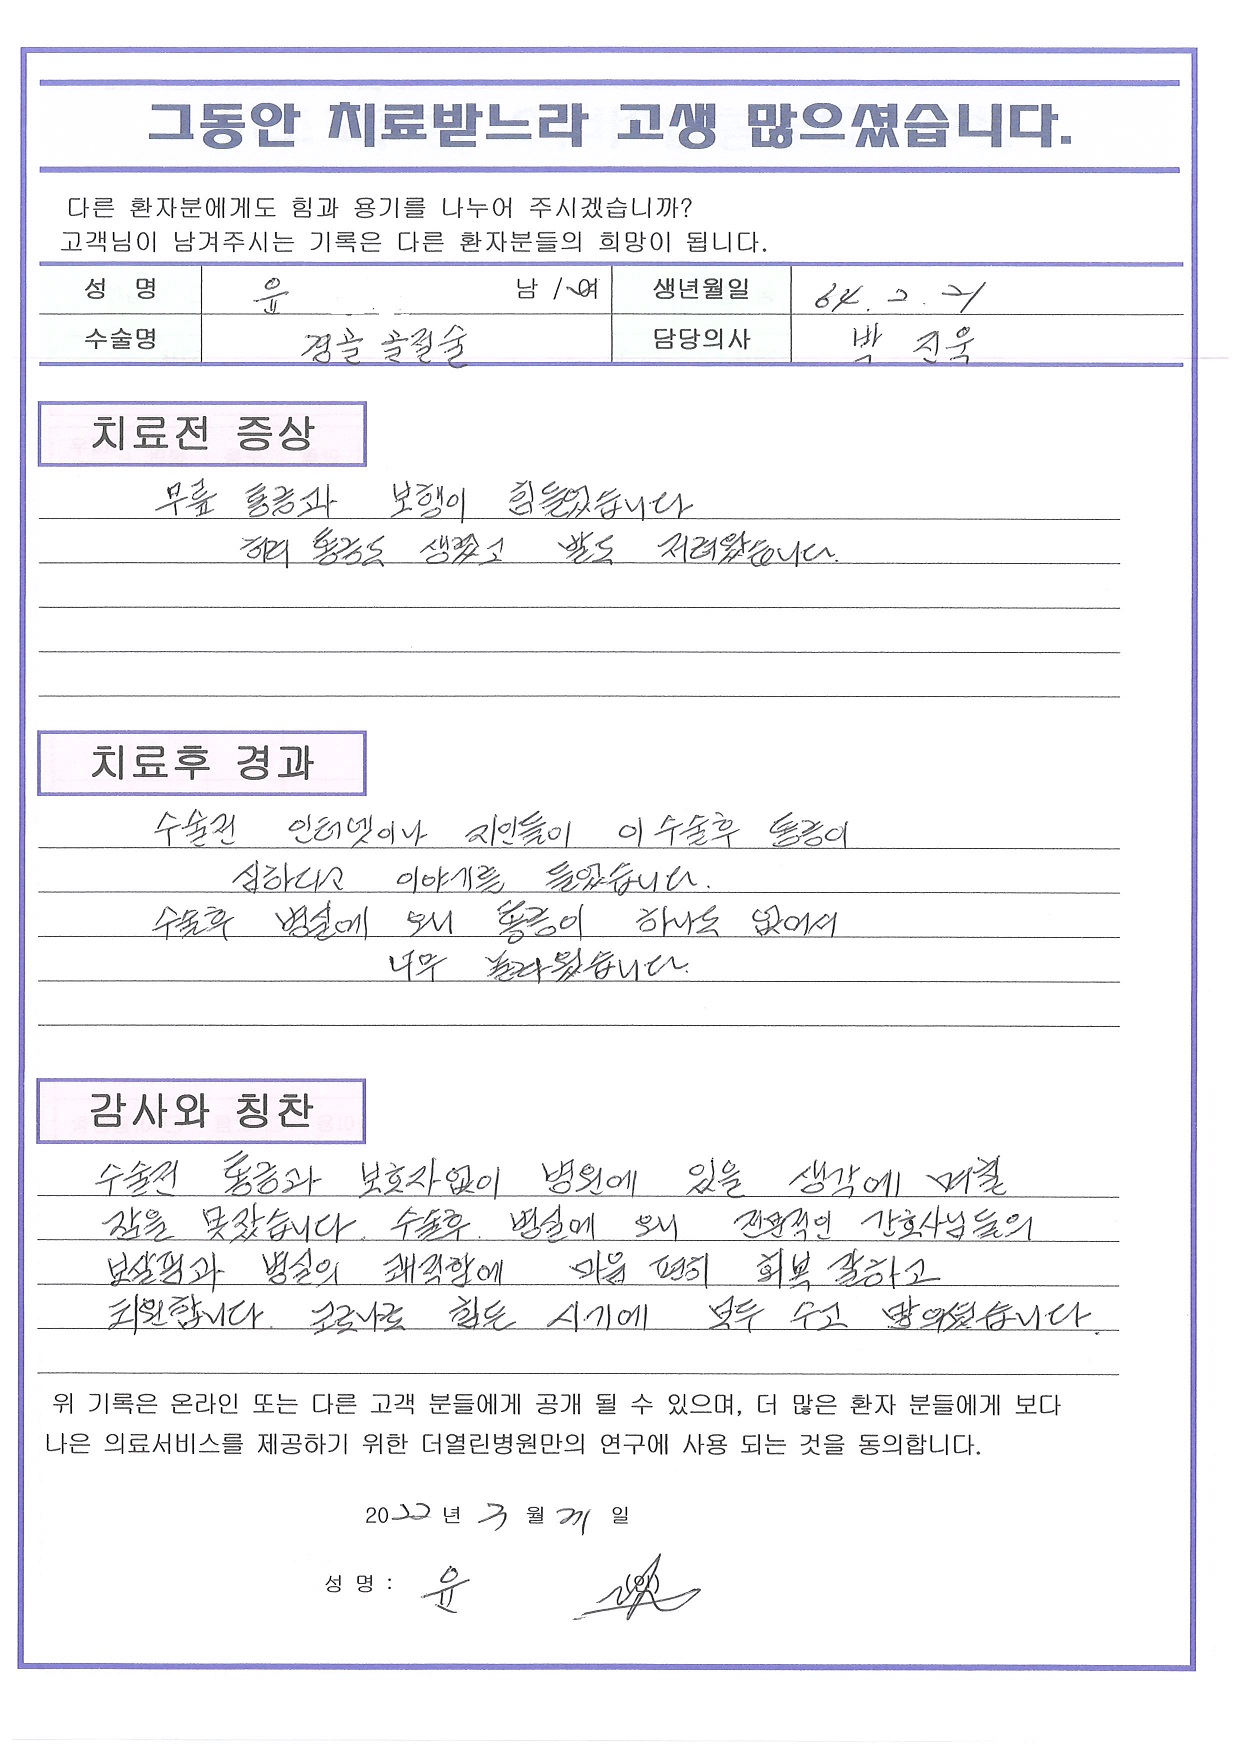 그동안 치료받느라 고생 많으셨습니다.
다른 환자분에게도 힘과 용기를 나누어 주시겠습니까?
고객님이 남겨주시는 기록은 다른 환자분들의 희망이 됩니다.
성 명 윤 남 / 여 생년월일 64. 2. 21
수술명 경골 골절술 담당의사 박 진욱
치료전 증상
무릎 통증과 보행이 힘들었습니다
허리 통증도 생겼고 발도 저려왔습니다.
치료후 경과
수술전 인터넷이나 지인들이 이 수술후 통증이
심하다고 이야기를 들었습니다.
수술후 병실에 오니 통증이 하나도 없어서
너무 놀라웠습니다.
감사와 칭찬
수술전 통증과 보호자없이 병원에 있을 생각에 며칠
잠을 못잤습니다. 수술후 병실에 오니 전문적인 간호사님들의
보살핌과 병실의 쾌적함에 마음 편히 회복 잘하고
퇴원합니다. 코로나로 힘든 시기에 모두 수고 많으셨습니다.
위 기록은 온라인 또는 다른 고객 분들에게 공개 될 수 있으며, 더 많은 환자 분들에게 보다
나은 의료서비스를 제공하기 위한 더열린병원만의 연구에 사용 되는 것을 동의합니다.
2022 년 3 월 21 일
성 명 : 윤 (인)